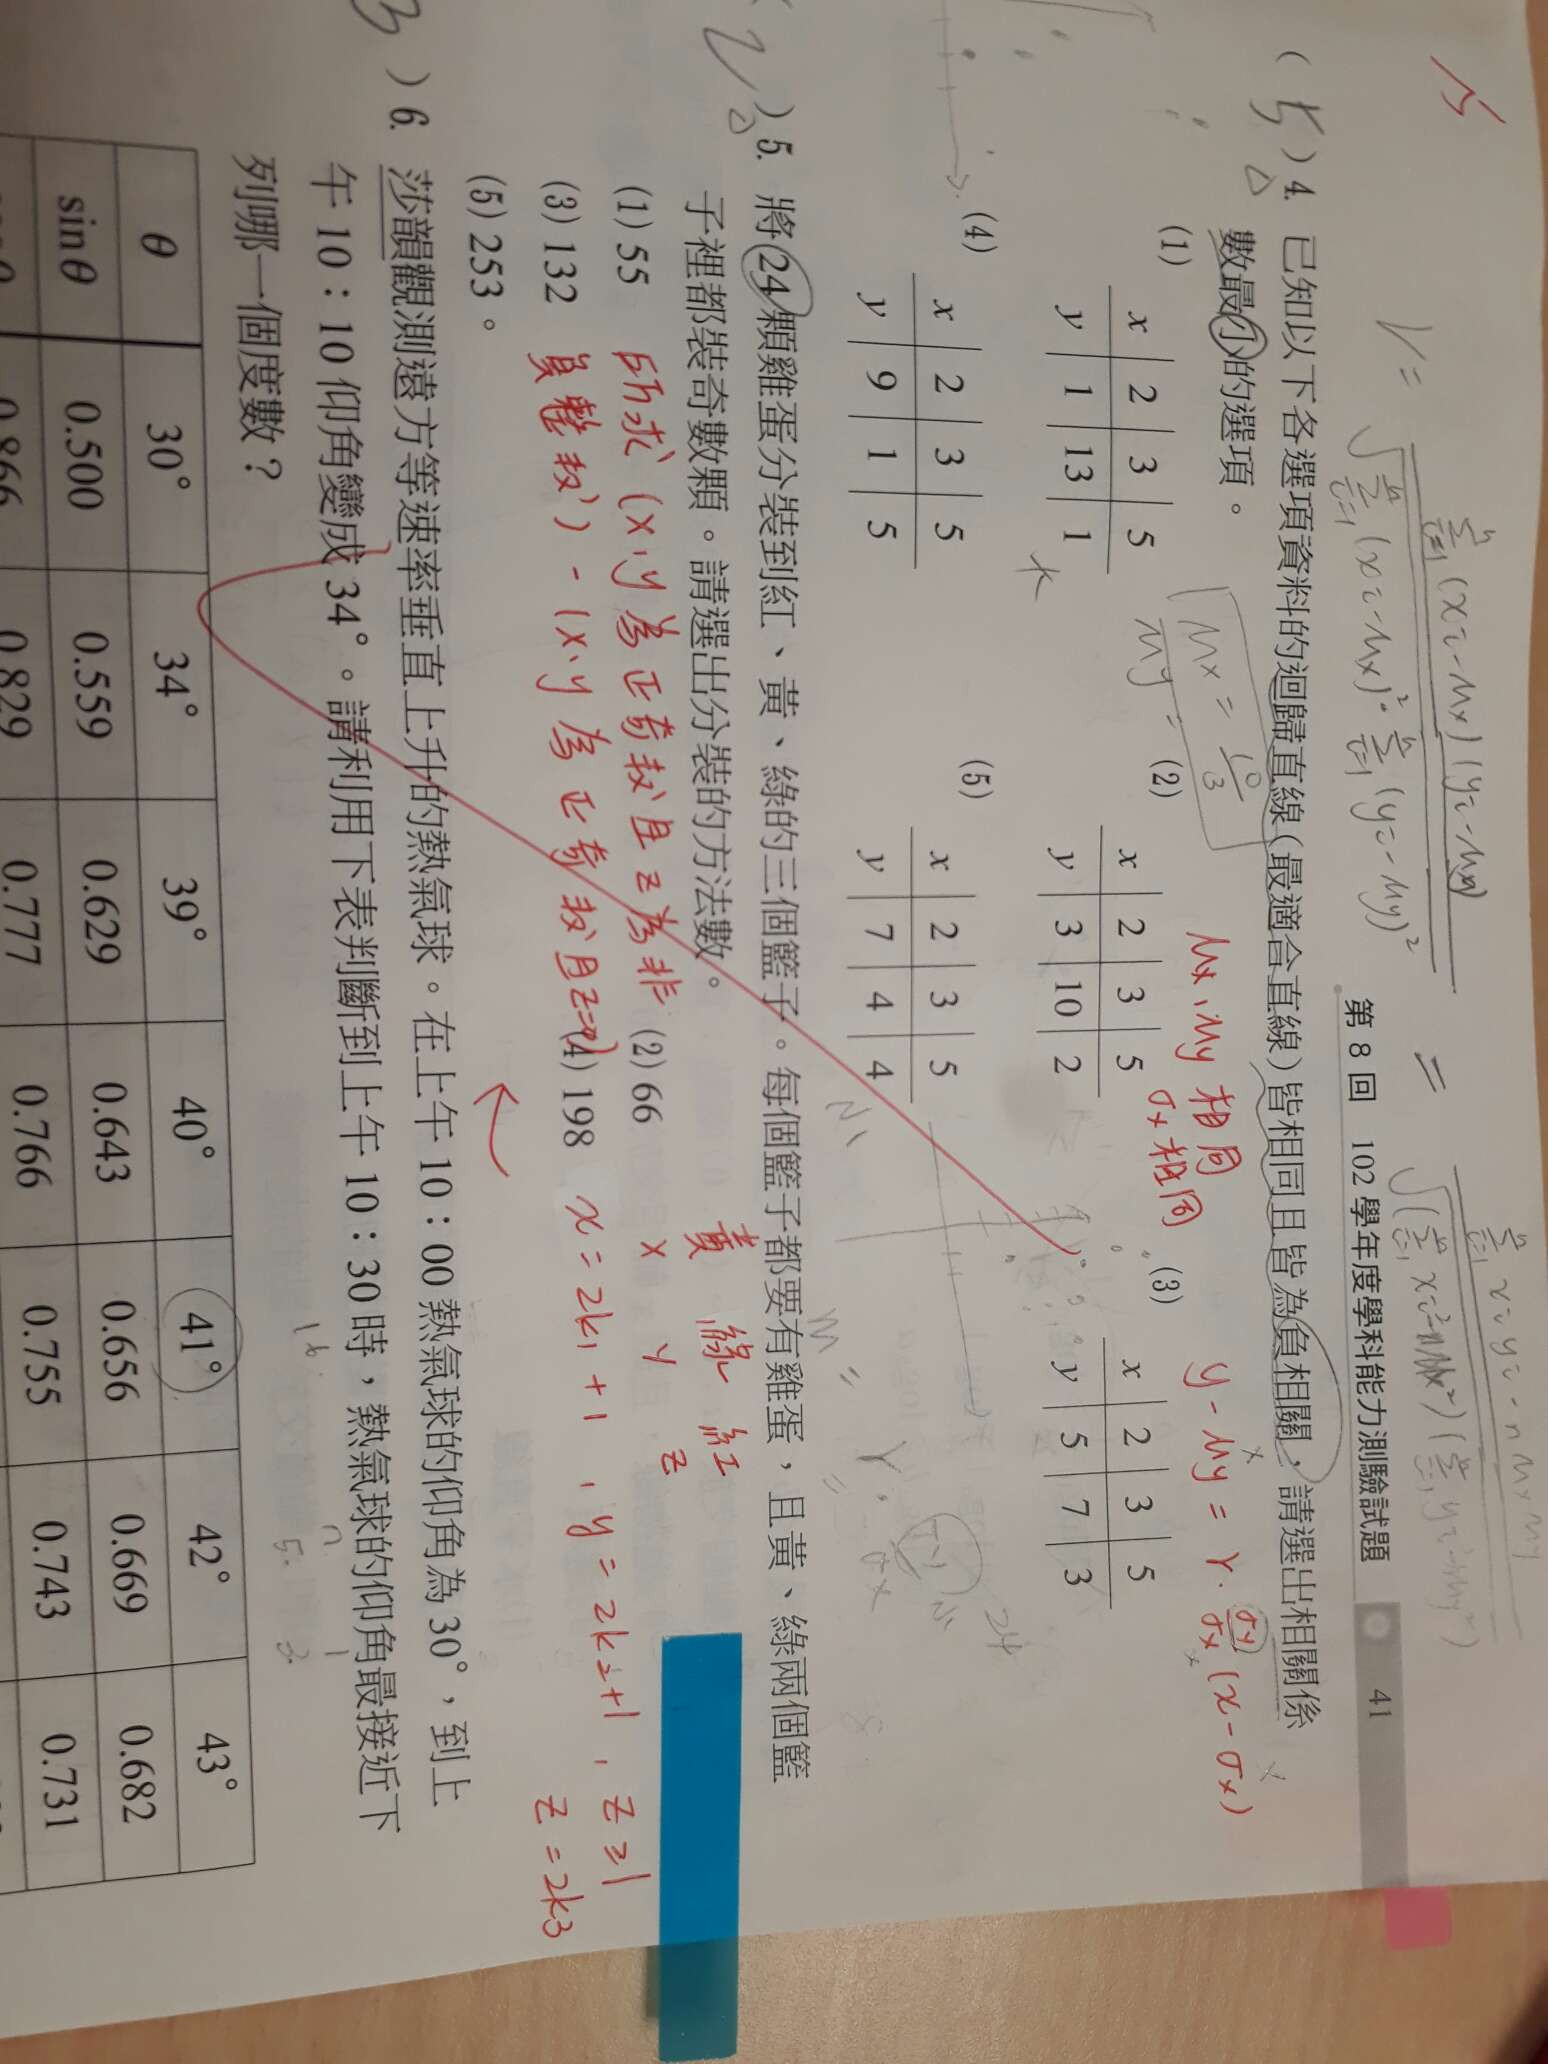 第 8 回　102 學年度學科能力測驗試題　41
( 5 ) 4. 已知以下各選項資料的迴歸直線(最適合直線)皆相同且皆為負相關，請選出相關係
數最小的選項。
μx = 10/3
μy =
μx, μy 相同
σx 相同
y - μy = r · σy/σx (x - σx)
(1) x 2 3 5
y 1 13 1
(2) x 2 3 5
y 3 10 2
(3) x 2 3 5
y 5 7 3
(4) x 2 3 5
y 9 1 5
(5) x 2 3 5
y 7 4 4
2 ) 5. 將 24 顆雞蛋分裝到紅、黃、綠的三個籃子。每個籃子都要有雞蛋，且黃、綠兩個籃
子裡都裝奇數顆。請選出分裝的方法數。
黃 綠 紅
x y z
(1) 55 (2) 66
所求 (x,y 為正奇數且 z 為非
負整數) - (x、y 為正奇數且 z=0)
(3) 132 (4) 198
x = 2k1 + 1 , y = 2k2+1 , z ≥ 1
z = 2k3
(5) 253。
3 ) 6. 莎韻觀測遠方等速率垂直上升的熱氣球。在上午 10：00 熱氣球的仰角為 30°，到上
午 10：10 仰角變成 34°。請利用下表判斷到上午 10：30 時，熱氣球的仰角最接近下
列哪一個度數？
θ 30° 34° 39° 40° 41° 42° 43°
sinθ 0.500 0.559 0.629 0.643 0.656 0.669 0.682
0.866 0.829 0.777 0.766 0.755 0.743 0.731